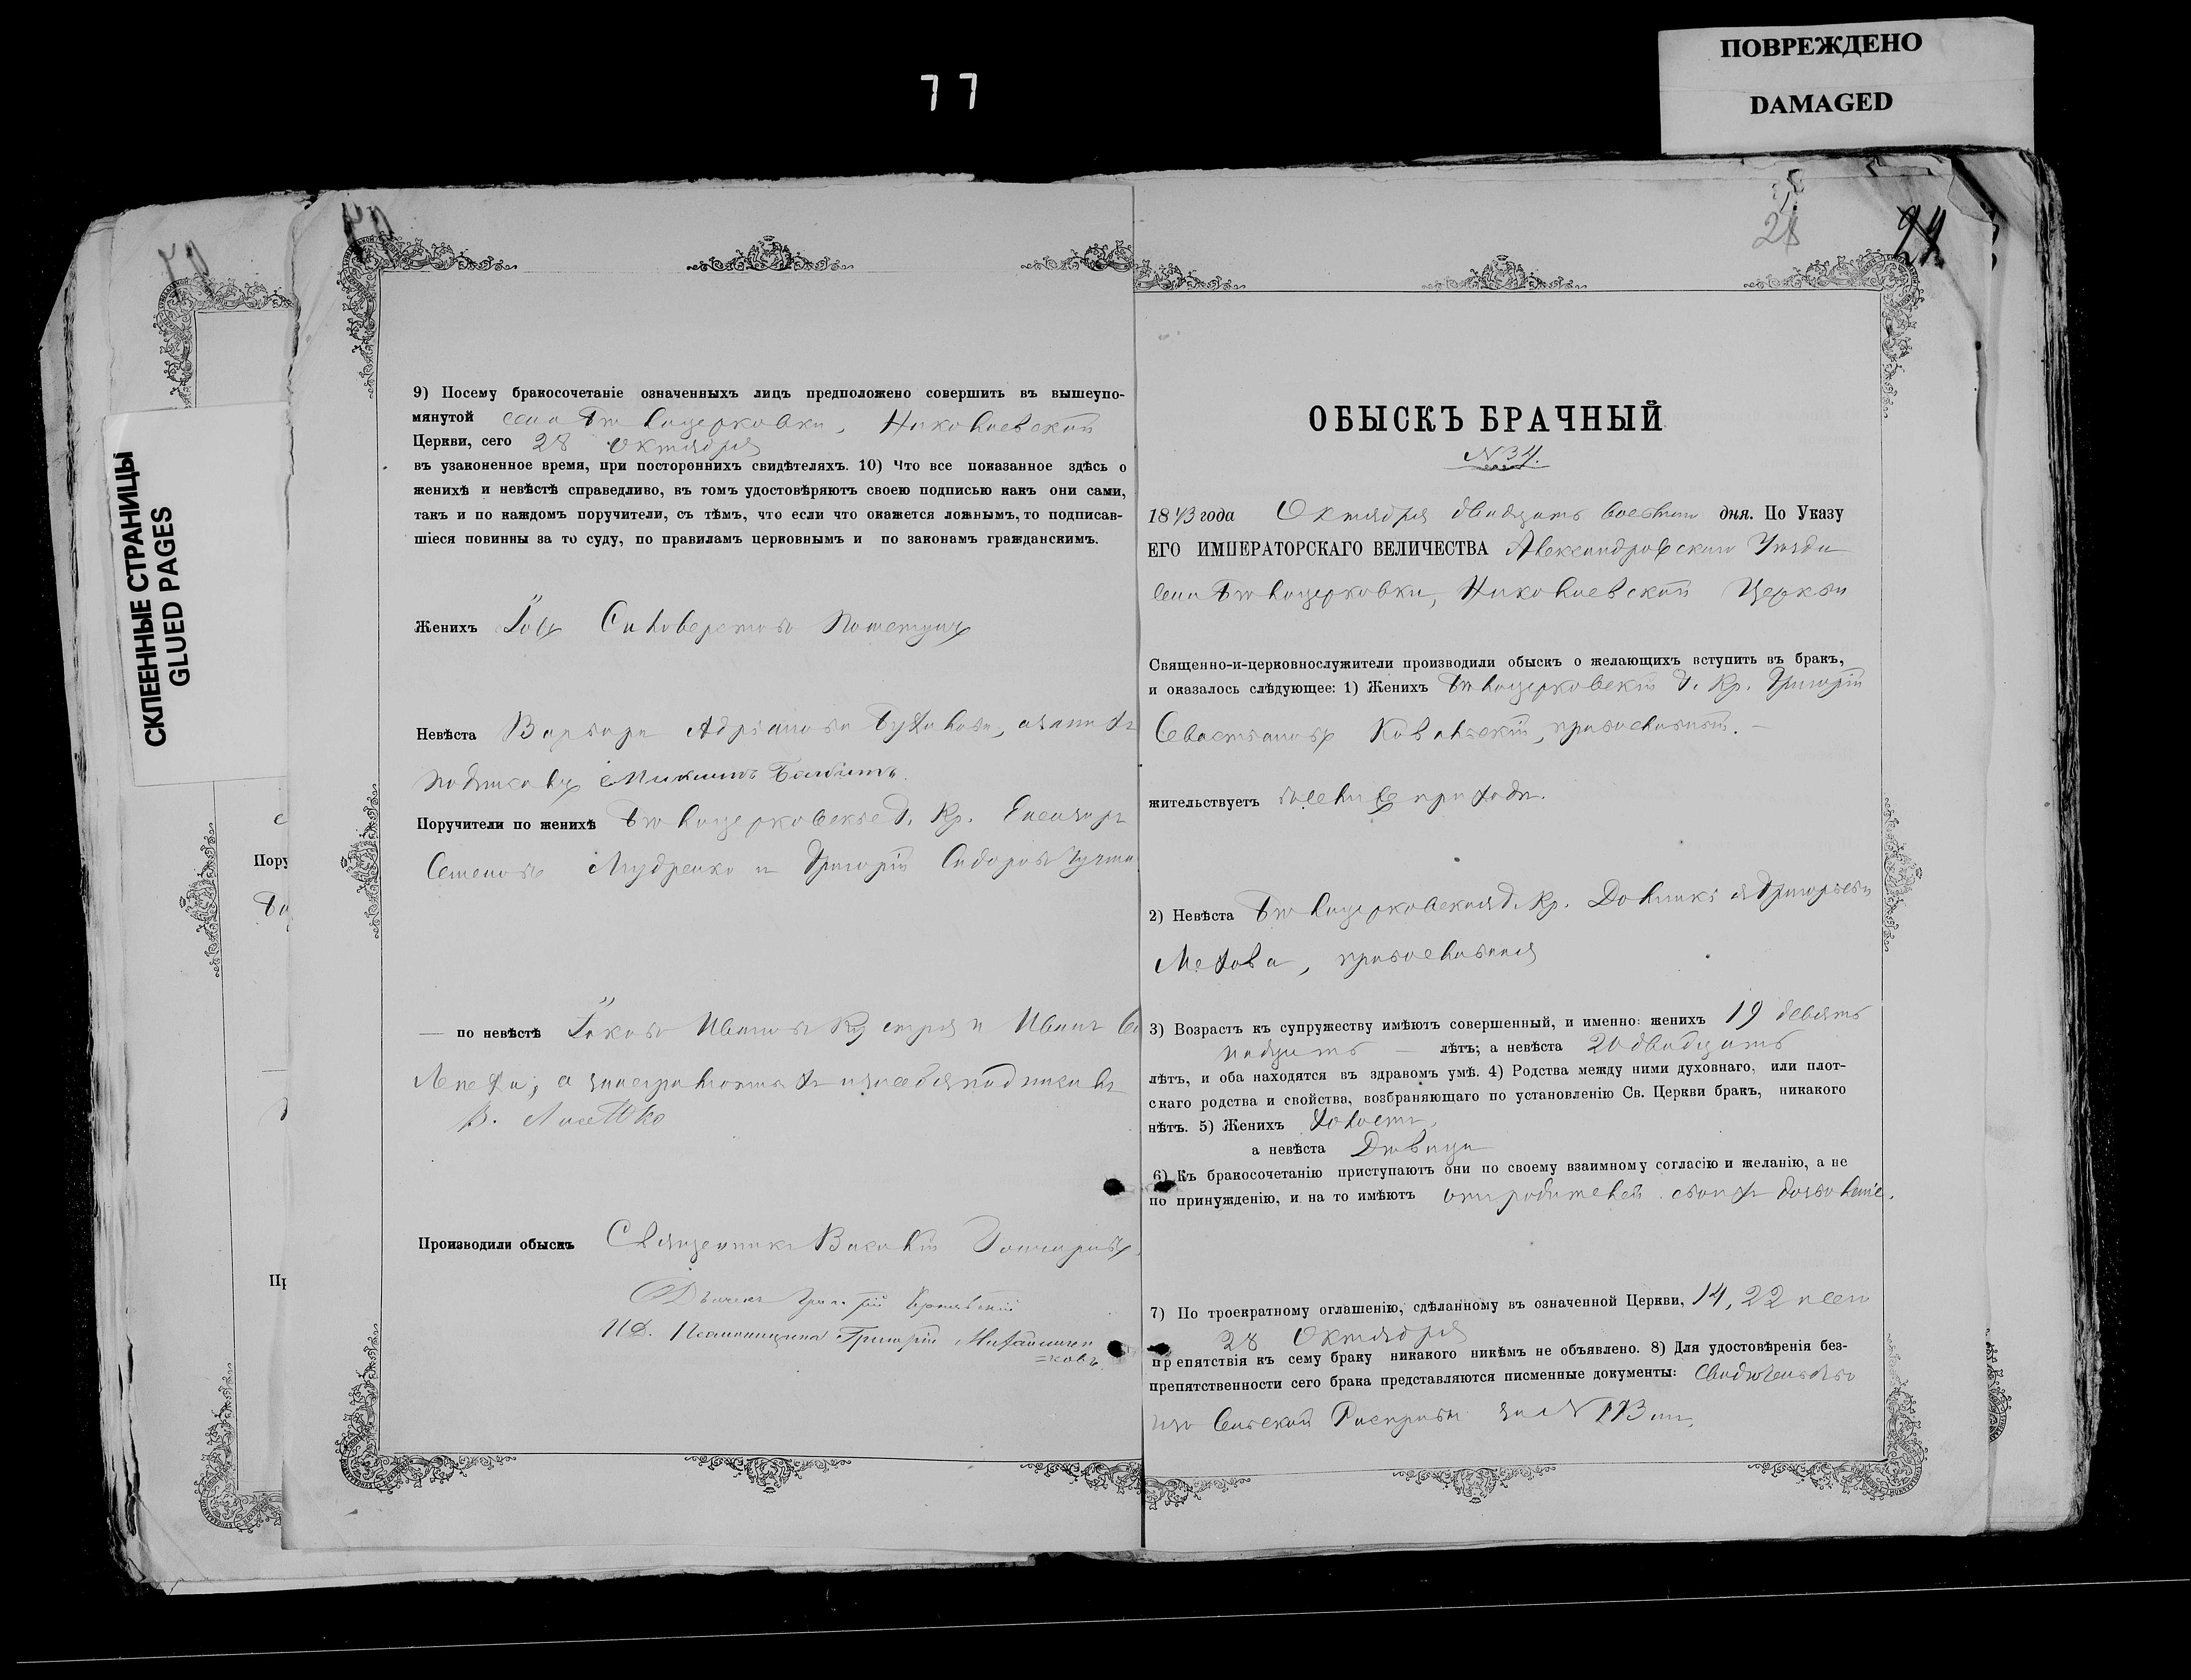 77
ПОВРЕЖДЕНО
DAMAGED
СКЛЕЕННЫЕ СТРАНИЦЫ
GLUED PAGES
Пору
Пр
9) Посему бракосочетаніе означенныхъ лицъ предположено совершить въ вышеупо-
мянутой села Бѣлоцерковки, Николаевской
Церкви, сего 28 Октября
въ узаконенное время, при постороннихъ свидѣтеляхъ. 10) Что все показанное здѣсь о
женихѣ и невѣстѣ справедливо, въ томъ удостовѣряютъ своею подписью какъ они сами,
такъ и по каждомъ поручители, съ тѣмъ, что если что окажется ложнымъ, то подписав-
шіеся повинны за то суду, по правиламъ церковнымъ и по законамъ гражданскимъ.
Женихъ Сильверстовъ
Невѣста Варвара Адріанова
Поручители по женихѣ Бѣлоцерковскіе Г. Кр. Елеазаръ
Семеновъ Мудренко и Григорій Сидоровъ
— по невѣстѣ Яковъ Ивановъ и Иванъ
Лепеха, а неграмотныхъ
В.
Производили обыскъ Священникъ Гончаровъ
Дьячекъ Григорій
И.Д. Псаломщика Григорій Михайличен
=ковъ
28
24
ОБЫСКЪ БРАЧНЫЙ
N 34.
1873 года Октября двадцать восьмого дня. По Указу
ЕГО ИМПЕРАТОРСКАГО ВЕЛИЧЕСТВА Александровскаго Уѣзда
села Бѣлоцерковки, Николаевской Церкви
Священно-и-церковнослужители производили обыскъ о желающихъ вступить въ бракъ,
и оказалось слѣдующее: 1) Женихъ Бѣлоцерковскій Г. Кр. Григорій
Севастьяновъ Ковальскій, православный. —
жительствуетъ въ семъ приходѣ.
2) Невѣста Бѣлоцерковская Г. Кр. Доминикія Григорьева
Мехова, православная
3) Возрастъ къ супружеству имѣютъ совершенный, и именно: женихъ 19 девят
надцать — лѣтъ; а невѣста 20 двадцать
лѣтъ, и оба находятся въ здравомъ умѣ. 4) Родства между ними духовнаго, или плот-
скаго родства и свойства, возбраняющаго по установленію Св. Церкви бракъ, никакого
нѣтъ. 5) Женихъ Холостъ,
а невѣста Дѣвица
6) Къ бракосочетанію приступаютъ они по своему взаимному согласію и желанію, а не
по принужденію, и на то имѣютъ отъ родителей своихъ дозволеніе.
7) По троекратному оглашенію, сдѣланному въ означенной Церкви, 14, 22 и сего
28 Октября
препятствія къ сему браку никакого никѣмъ не объявлено. 8) Для удостовѣренія без-
препятственности сего брака представляются писменные документы: Свидѣтельство
изъ Сельской Расправы за N